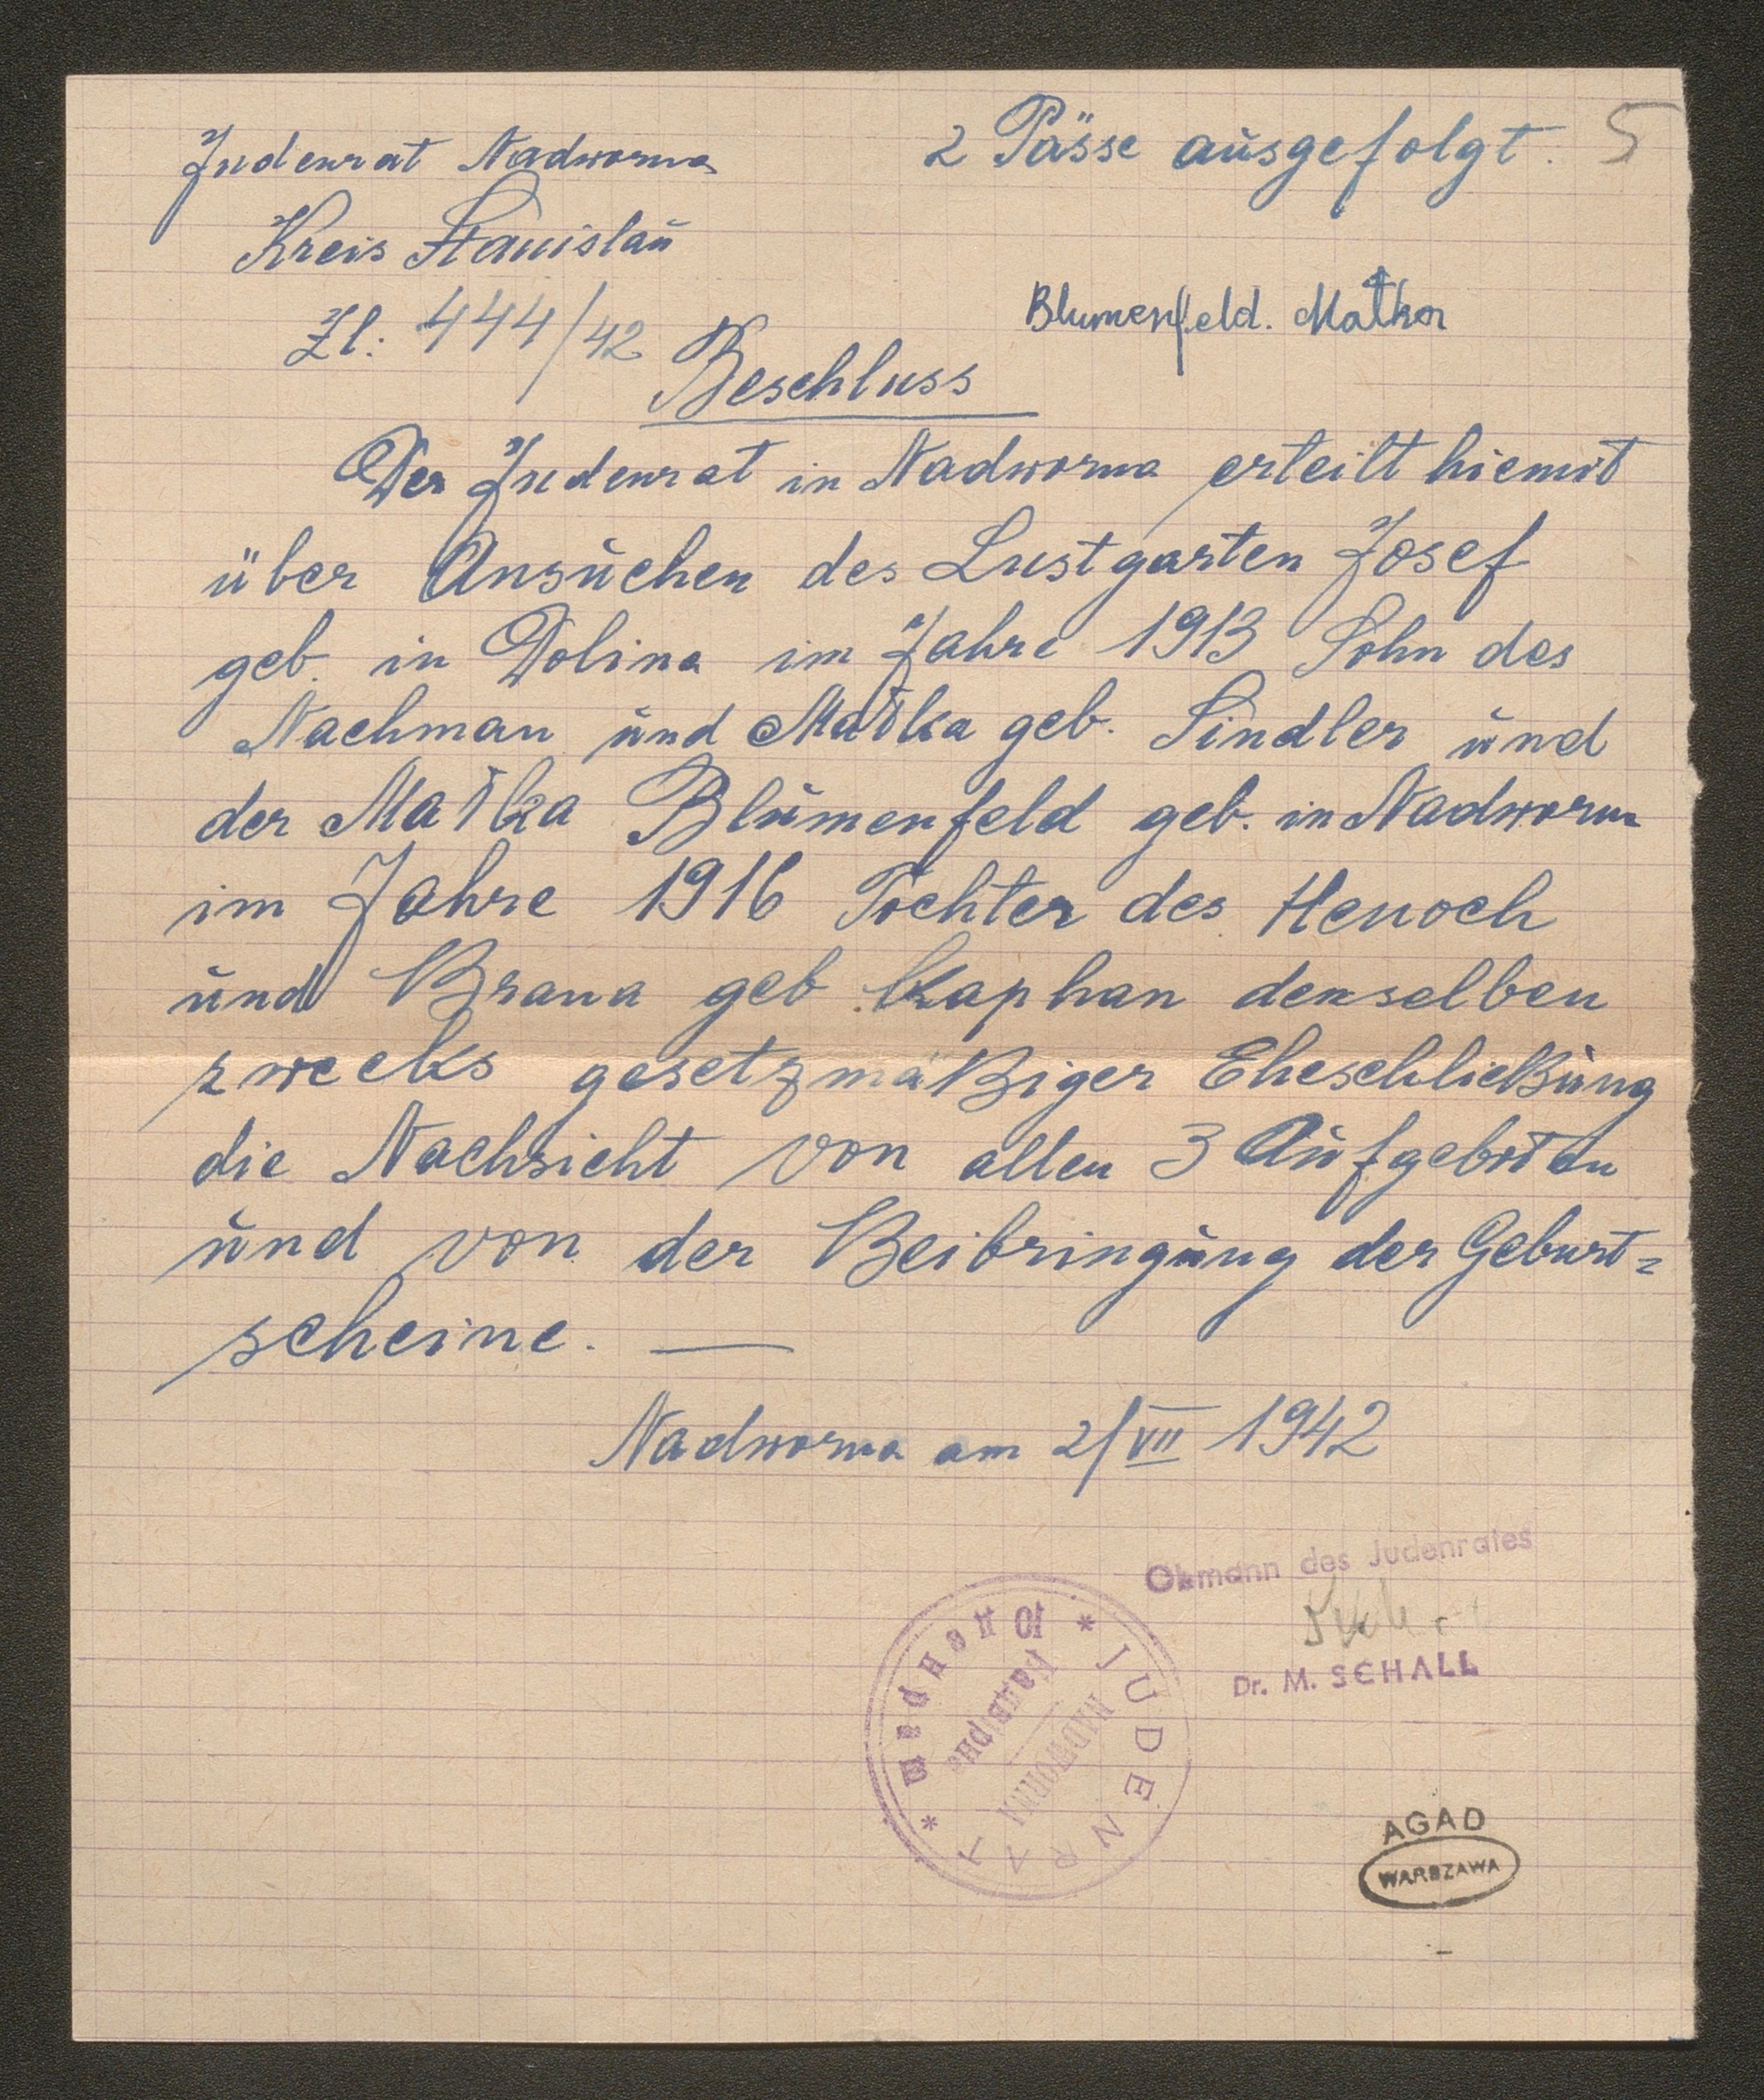 Judenrat Nadworna
2 Pässe ausgefolgt. 5
Kreis Stanislau
Zl: 444/42
Blumenfeld. Matka
Beschluss
Der Judenrat in Nadworna erteilt hiemit
über Ansuchen des Lustgarten Josef
geb. in Dolina im Jahre 1913 Sohn des
Nachman und Matka geb. Sindler und
der Matka Blumenfeld geb. in Nadworna
im Jahre 1916 Tochter des Henoch
und Brana geb Kaphan denselben
zwecks gesetzmäßiger Eheschließung
die Nachsicht von allen 3 Aufgeboten
und von der Beibringung der Geburt=
scheine. —
Nadworna am 2/VII 1942
Obmann des Judenrates
Dr. M. SCHALL
* JUDENRAT *
NADWORNA
AGAD
WARSZAWA